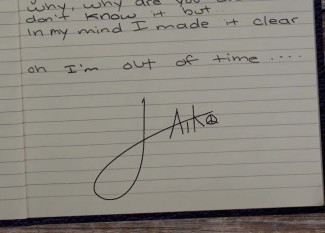 why, why are you
don't know it but
in my mind I made it clear
oh I'm out of time ....